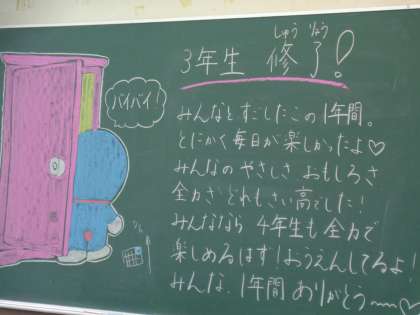 しゅう りょう
3年生 修了!
バイバイ!
みんなとすごしたこの1年間。
とにかく毎日が楽しかったよ♡
みんなのやさしさ おもしろさ
全力さ どれもさい高でした!
みんななら 4年生も全力で
楽しめるはず!おうえんしてるよ!
みんな、1年間 ありがとう〜♡